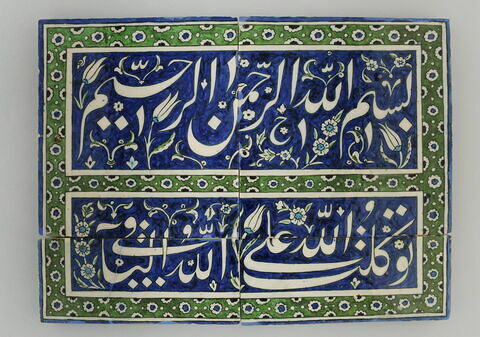 بسم الله الرحمن الرحيم
توكلت على الله الباقي